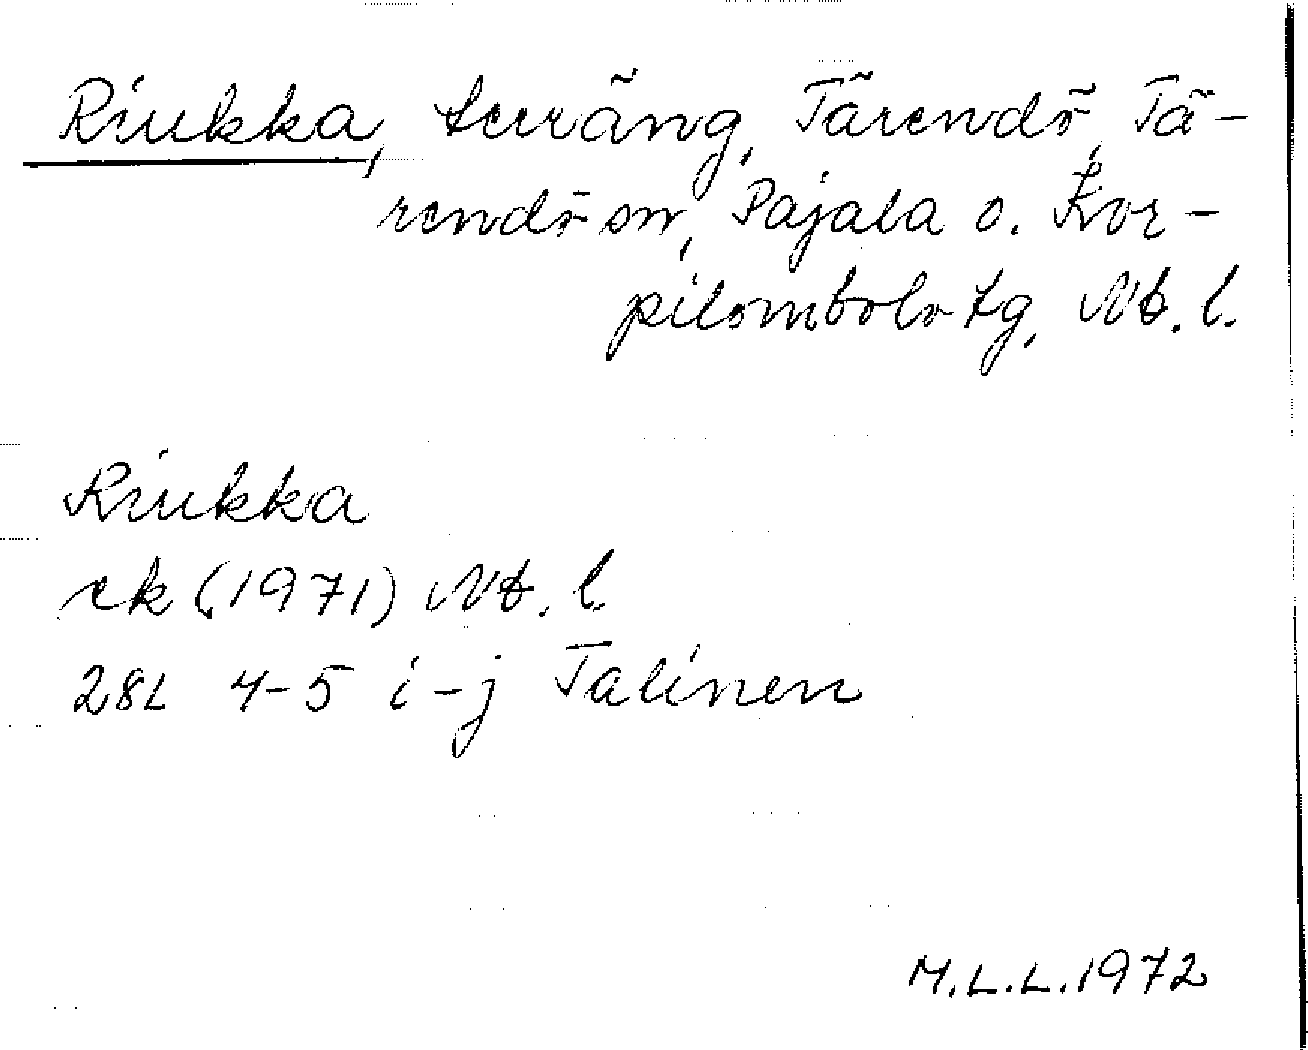 Riukka, terräng, Tärendö, Tä-
rendö sn, Pajala o. Kor-
pilombolo tg, Nb. l.
Riukka
ek (1971) Nb. l.
28L 4-5 i-j Talinen
M.L.L. 1972